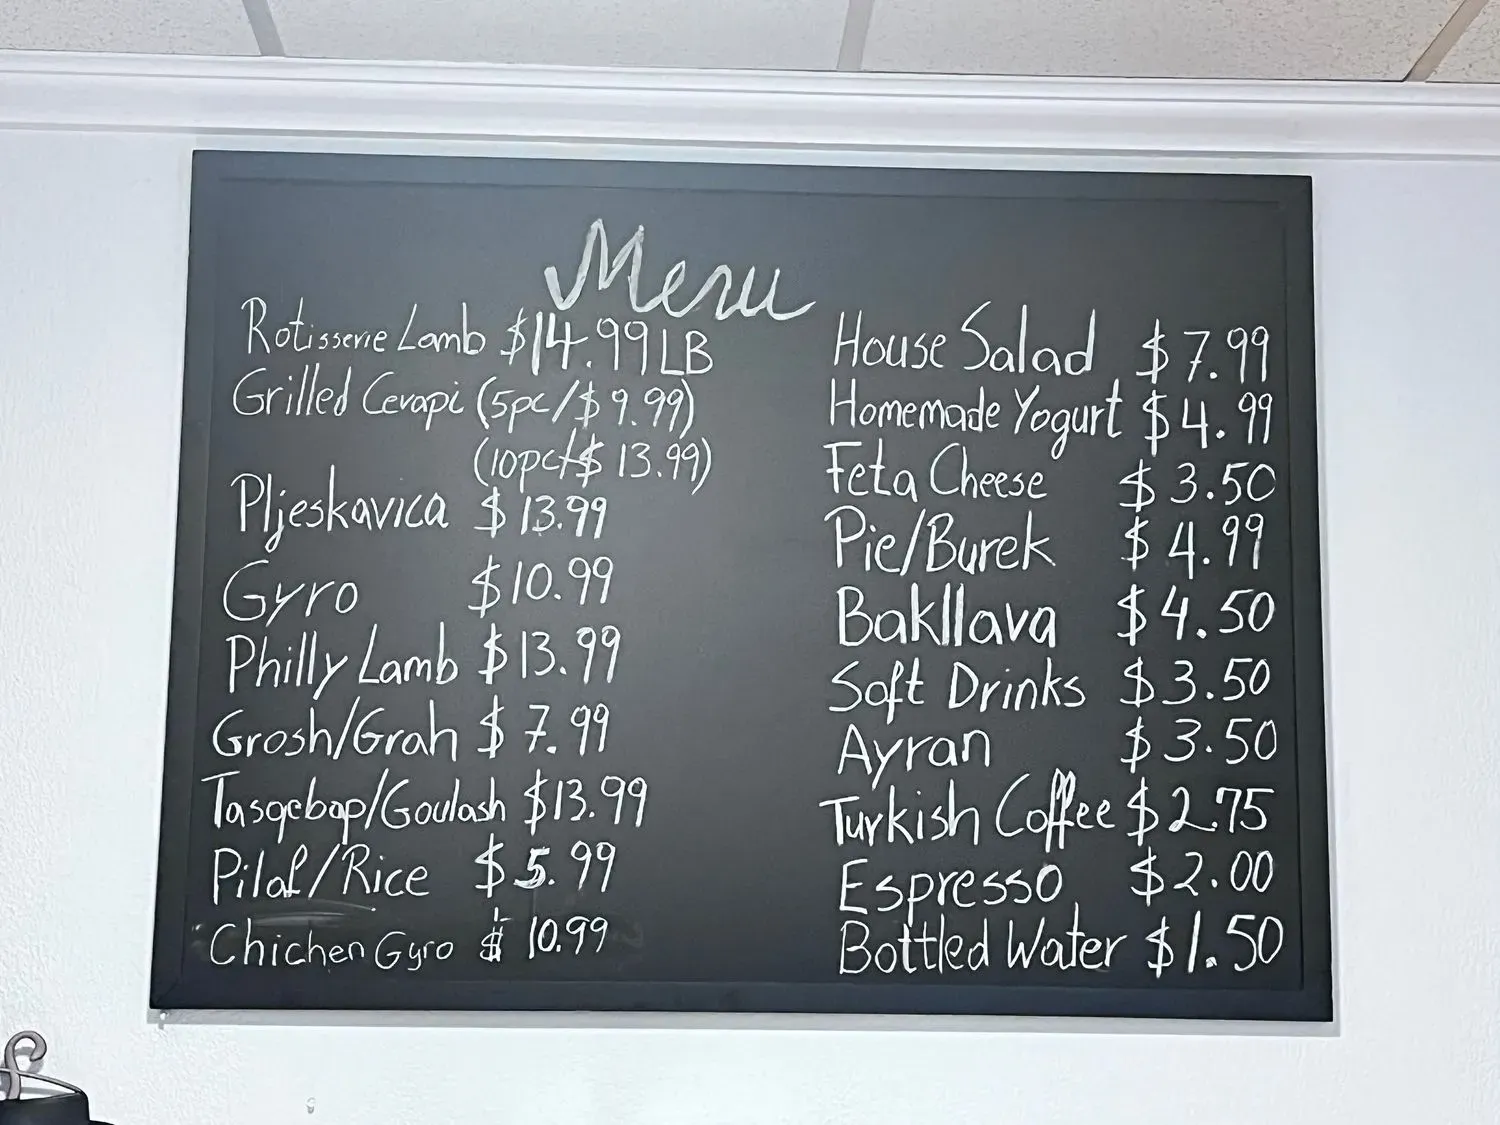 Menu
Rotisserie Lamb $14.99 LB
Grilled Cevapi (5pc/$9.99)
(10pc/$13.99)
Pljeskavica $13.99
Gyro $10.99
Philly Lamb $13.99
Grosh/Grah $7.99
Tasqebap/Goulash $13.99
Pilaf/Rice $5.99
Chichen Gyro $10.99
House Salad $7.99
Homemade Yogurt $4.99
Feta Cheese $3.50
Pie/Burek $4.99
Bakllava $4.50
Soft Drinks $3.50
Ayran $3.50
Turkish Coffee $2.75
Espresso $2.00
Bottled Water $1.50